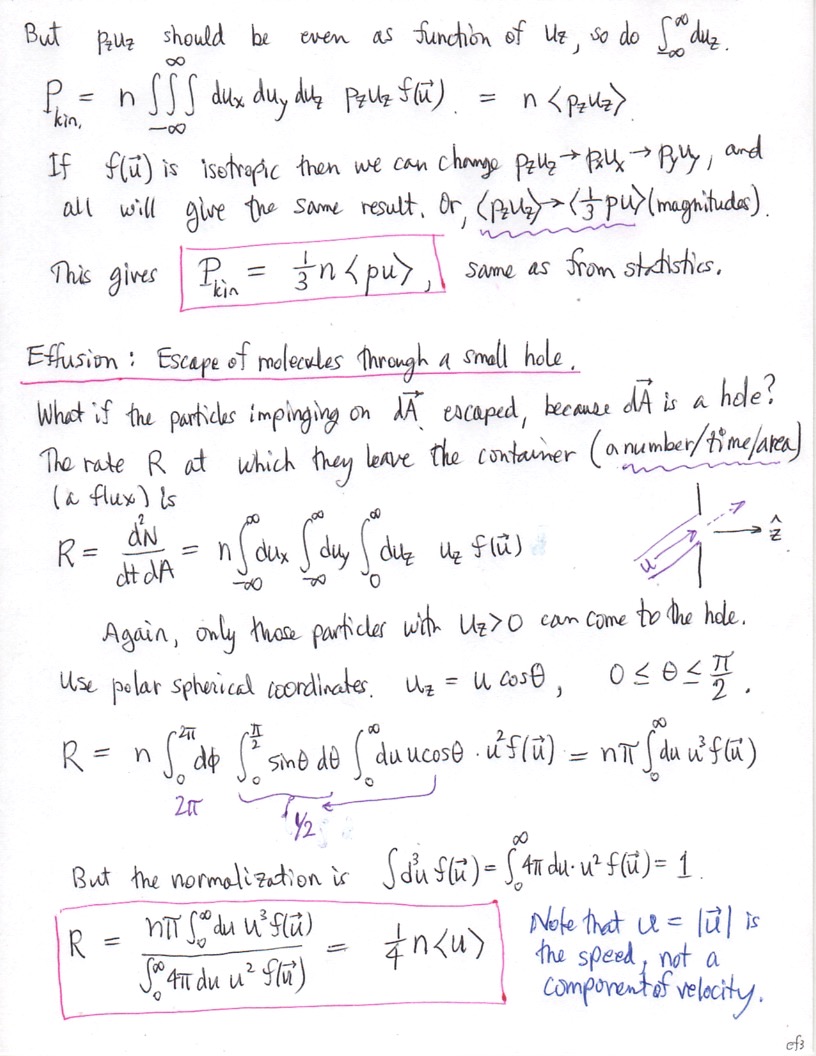 But p_z u_z should be even as function of u_z, so do ∫_{-∞}^{∞} du_z.
P_{kin.} = n ∫∫∫_{-∞}^{∞} du_x du_y du_z p_z u_z f(u⃗). = n <p_z u_z>
If f(u⃗) is isotropic then we can change p_z u_z → p_x u_x → p_y u_y, and
all will give the same result. Or, <p_z u_z> → <1/3 pu> (magnitudes).
This gives P_{kin} = 1/3 n <pu>, same as from statistics.
Effusion: Escape of molecules through a small hole.
What if the particles impinging on dA⃗ escaped, because dA⃗ is a hole?
The rate R at which they leave the container (a number/time/area)
(a flux) is
R = d²N/dt dA = n ∫_{-∞}^{∞} du_x ∫_{-∞}^{∞} du_y ∫_0^{∞} du_z u_z f(u⃗)
u ẑ
Again, only those particles with u_z > 0 can come to the hole.
Use polar spherical coordinates. u_z = u cosθ, 0 ≤ θ ≤ π/2.
R = n ∫_0^{2π} dϕ ∫_0^{π/2} sinθ dθ ∫_0^{∞} du u cosθ · u² f(u⃗) = nπ ∫_0^{∞} du u³ f(u⃗)
2π 1/2
But the normalization is ∫d³u f(u⃗) = ∫_0^{∞} 4π du · u² f(u⃗) = 1.
R = nπ ∫_0^{∞} du u³ f(u⃗) / ∫_0^{∞} 4π du u² f(u⃗) = 1/4 n<u>
Note that u = |u⃗| is
the speed, not a
component of velocity.
ef3